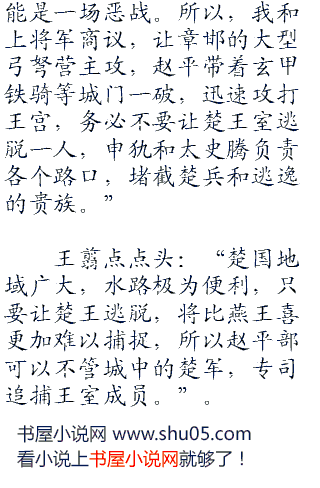 能是一场恶战。所以，我和
上将军商议，让章邯的大型
弓弩营主攻，赵平带着玄甲
铁骑等城门一破，迅速攻打
王宫，务必不要让楚王室逃
脱一人，申犰和太史腾负责
各个路口，堵截楚兵和逃逸
的贵族。”
王翦点点头：“楚国地
域广大，水路极为便利，只
要让楚王逃脱，将比燕王喜
更加难以捕捉，所以赵平部
可以不管城中的楚军，专司
追捕王室成员。”。
书屋小说网 www.shu05.com
看小说上书屋小说网就够了！